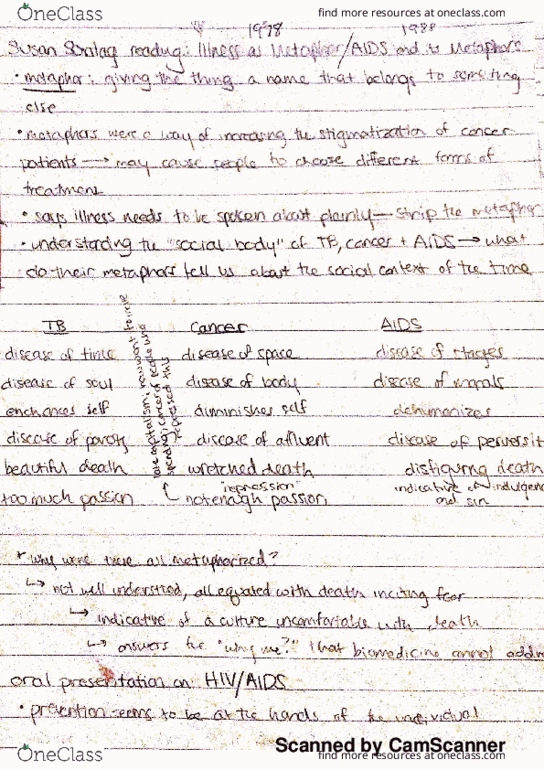 OneClass
find more resources at oneclass.com
1978 1988
Susan Sontag reading: Illness as Metaphor/AIDS and its Metaphors
• metaphor: giving the thing a name that belongs to something
else
• metaphors were a way of increasing the stigmatization of cancer
patients → may cause people to choose different forms of
treatment
• says illness needs to be spoken about plainly — strip the metaphor
• understanding the "social body" of TB, cancer + AIDS → what
do their metaphors tell us about the social context of the time
TB Cancer AIDS
disease of time disease of space disease of stages
disease of soul disease of body disease of morals
enhances self diminishes self dehumanizes
disease of poverty disease of affluent disease of perversit
beautiful death wretched death disfiguring death
too much passion not enough passion "repression" indicative of indulgenc
and sin
late capitalism, now want to
spending; cancer of people who
repressed this
* why were these all metaphorized?
↳ not well understood, all equated with death inciting fear
↳ indicative of a culture uncomfortable with death
↳ answers the "why me?" that biomedicine cannot addre
oral presentation on HIV/AIDS
• prevention seems to be at the hands of the individual
Scanned by CamScanner
OneClass
find more resources at oneclass.com